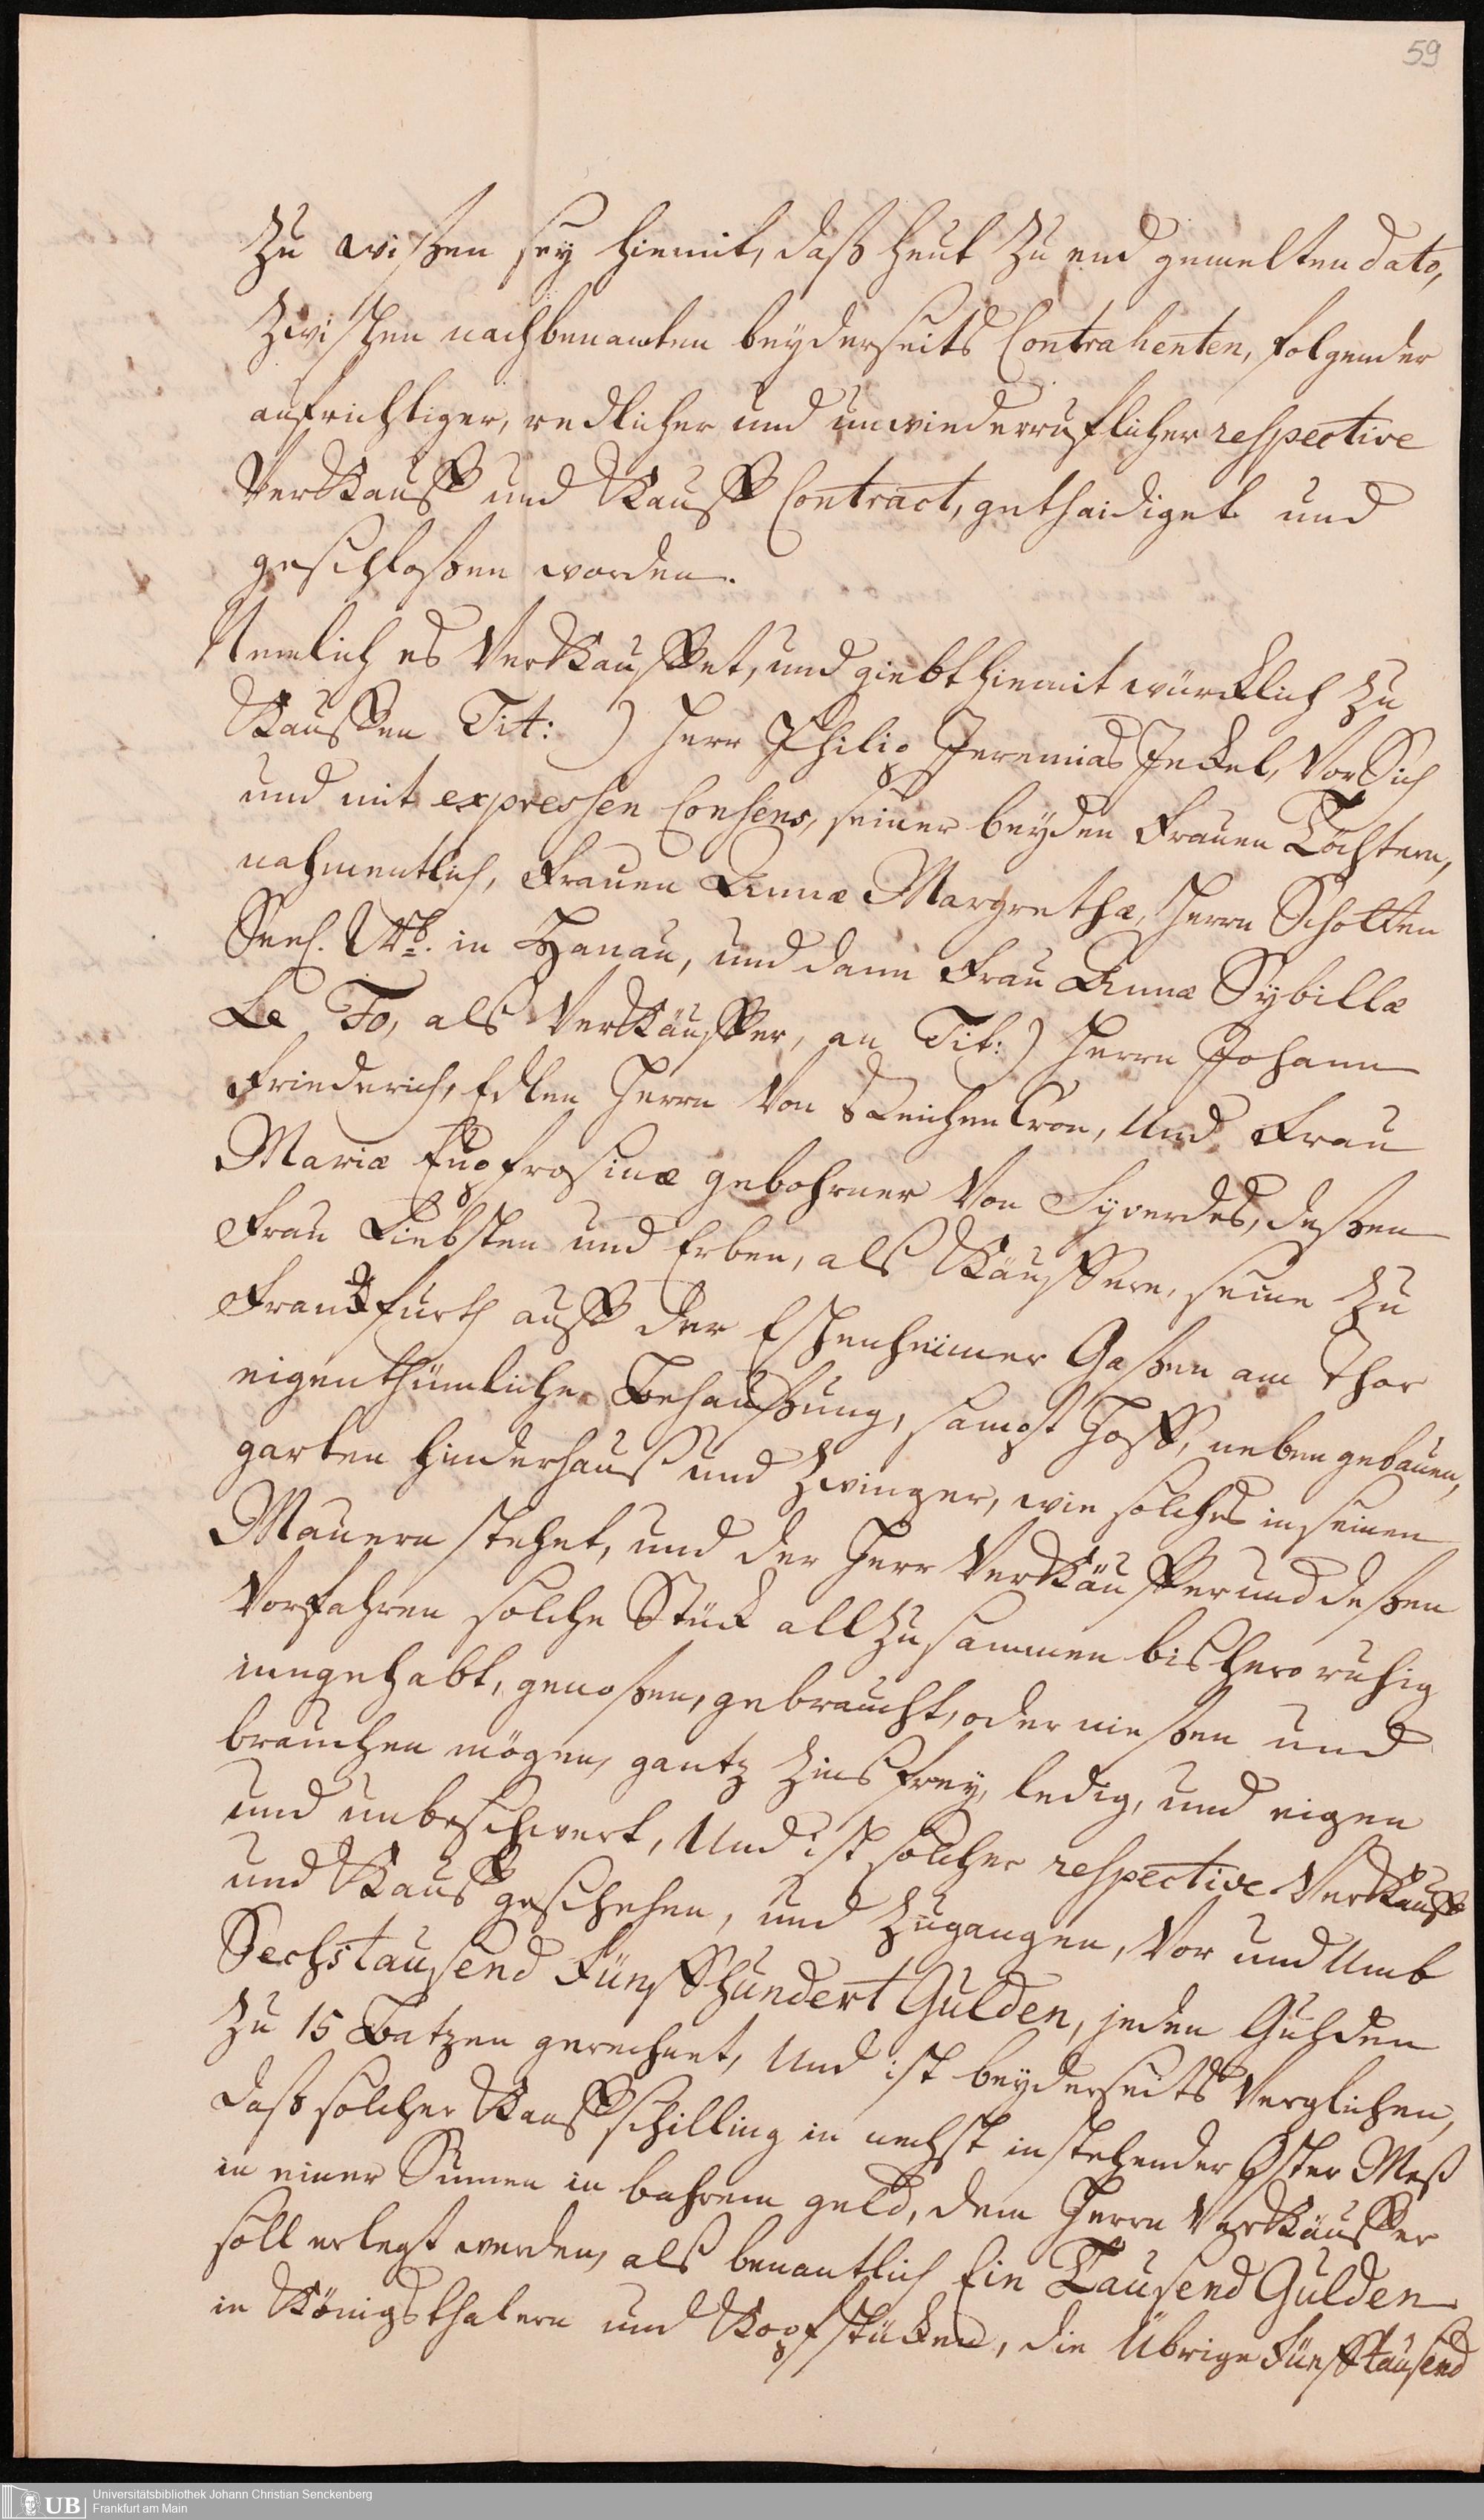 59
Zu wißen sey hiemit, daß heut zu end gemelten dato,
zwischen nachbenanten beyderseits Contrahenten, folgender
aufrichtiger, redlicher und unwiederruflicher respective
Verkauff und Kauff Contract, gethaidiget und
geschloßen worden.
Nemlich es Verkauffet, und giebt hiemit würcklich zu
Kauffen Tit: ) Herr Philip Jeremias Jeckel, Vor Sich
und mit expressen Consens, seiner beyden Frauen Töchtern,
nahmentlich, Frauen Annæ Margrethæ, Herrn Schotten
Seel. Wb. in Hanau, und dann Frau Annæ Sybillæ
Le To, als Verkäuffer, an Tit: ) Herrn Johann
Friederich, Edlen Herrn Von Reichen Cron, Und Frau
Mariæ Eupfrosinæ gebohrner Von Syverdes, deßen
Frau Liebsten und Erben, als Käuffern, seine zu
Franckfurth auff der Eschenheimer Gaßen am Thor
eigenthümliche Behaußung, sampt Hoff, neben gebäuen,
garten hinderhauß und Zwinger, wie solches in seinen
Mauern stehet, und der Herr Verkäuffer und deßen
Vorfahren solche Stück all zusammen bishero ruhig
inngehabt, genoßen, gebraucht, oder nießen und
brauchen mögen, gantz Zinsfrey, ledig, und eigen
und unbeschwert, Und ist solcher respective Verkauff
und Kauff geschehen, und zugangen, Vor und Umb
Sechstausend Fünffhundert Gulden, jeden Gulden
zu 15 Batzen gerechnet, Und ist beyderseits Verglichen,
daß solcher Kauffschilling in nechst instehender Oster Meß
in einer Summen in bahrem geld, dem Herrn Verkäuffer
soll erlegt werden, als benantlich Ein Tausend Gulden
in Königsthalern und Kopfstücken, die Übrige Fünfftausend
UB Universitätsbibliothek Johann Christian Senckenberg
Frankfurt am Main